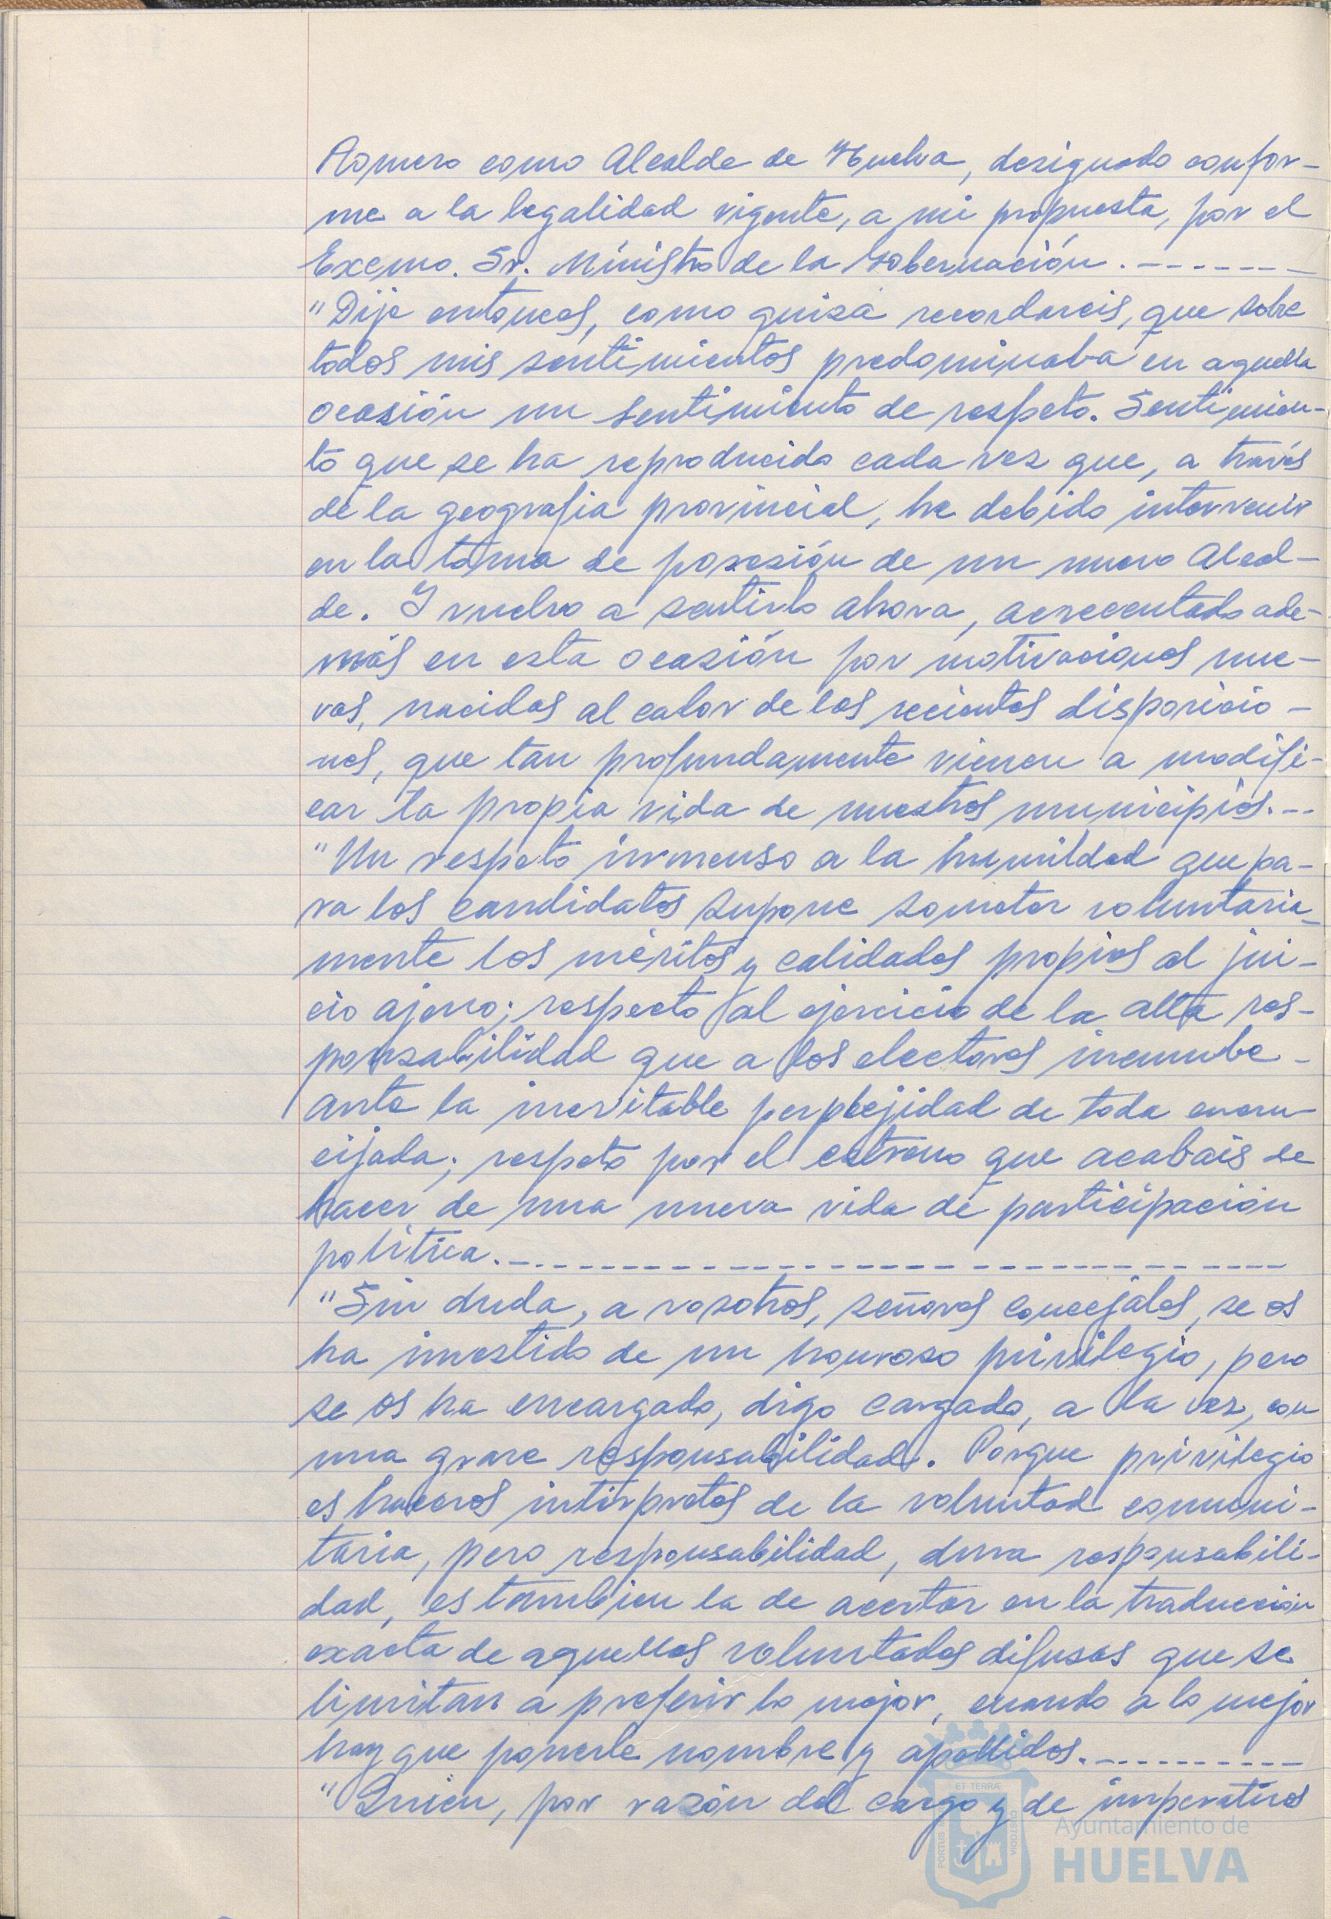 Romero como Alcalde de Huelva, designado confor-
me a la legalidad vigente, a mi propuesta, por el
Excmo. Sr. Ministro de la Gobernación.-------
"Dije entonces, como quizá recordareis, que sobre
todos mis sentimientos predominaba en aquella
ocasión un sentimiento de respeto. Sentimien-
to que se ha reproducido cada vez que, a través
de la geografía provincial, he debido intervenir
en la toma de posesión de un nuevo Alcal-
de. Y vuelvo a sentirlo ahora, acrecentado ade-
más en esta ocasión por motivaciones nue-
vas, nacidas al calor de las recientes disposicio-
nes, que tan profundamente vienen a modifi-
car la propia vida de nuestros municipios.--
"Un respeto inmenso a la humildad que pa-
ra los candidatos supone someter voluntaria-
mente los méritos y calidades propios al jui-
cio ajeno; respecto al ejercicio de la alta res-
ponsabilidad que a los electores incumbe-
ante la inevitable perplejidad de toda encru-
cijada; respeto por el estreno que acabais de
hacer de una nueva vida de participación
política.---------------------------
"Sin duda, a vosotros, señores concejales, se os
ha investido de un honroso privilegio, pero
se os ha encargado, digo cargado, a la vez, con
una grave responsabilidad. Porque privilegio
es haceros intérpretes de la voluntad comuni-
taria, pero responsabilidad, dura responsabili-
dad, es tambien la de acertar en la traducción
exacta de aquellas voluntades difusas que se
limitan a preferir lo mejor, cuando a lo mejor
hay que ponerle nombre y apellidos.----------
"Quien, por razón del cargo y de imperativos
ET TERRAE
PORTUS
CUSTODIA
Ayuntamiento de
HUELVA